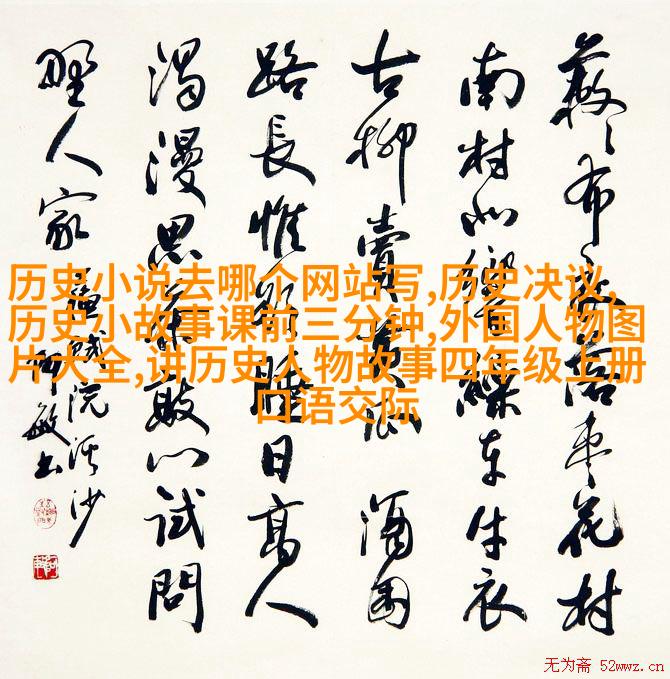 蔌〻衣巾落枣花村
南村北響繰车牛衣
古柳賣黄瓜 酒困
路長惟欲睡日高人
渴漫思茶敲门試問
野人家 蘇軾浣溪沙
敏书
历史小说去哪个网站写,历史决议,
历史小故事课前三分钟,外国人物图
片大全,讲历史人物故事四年级上册
口语交际
无为斋 52wwz.cn